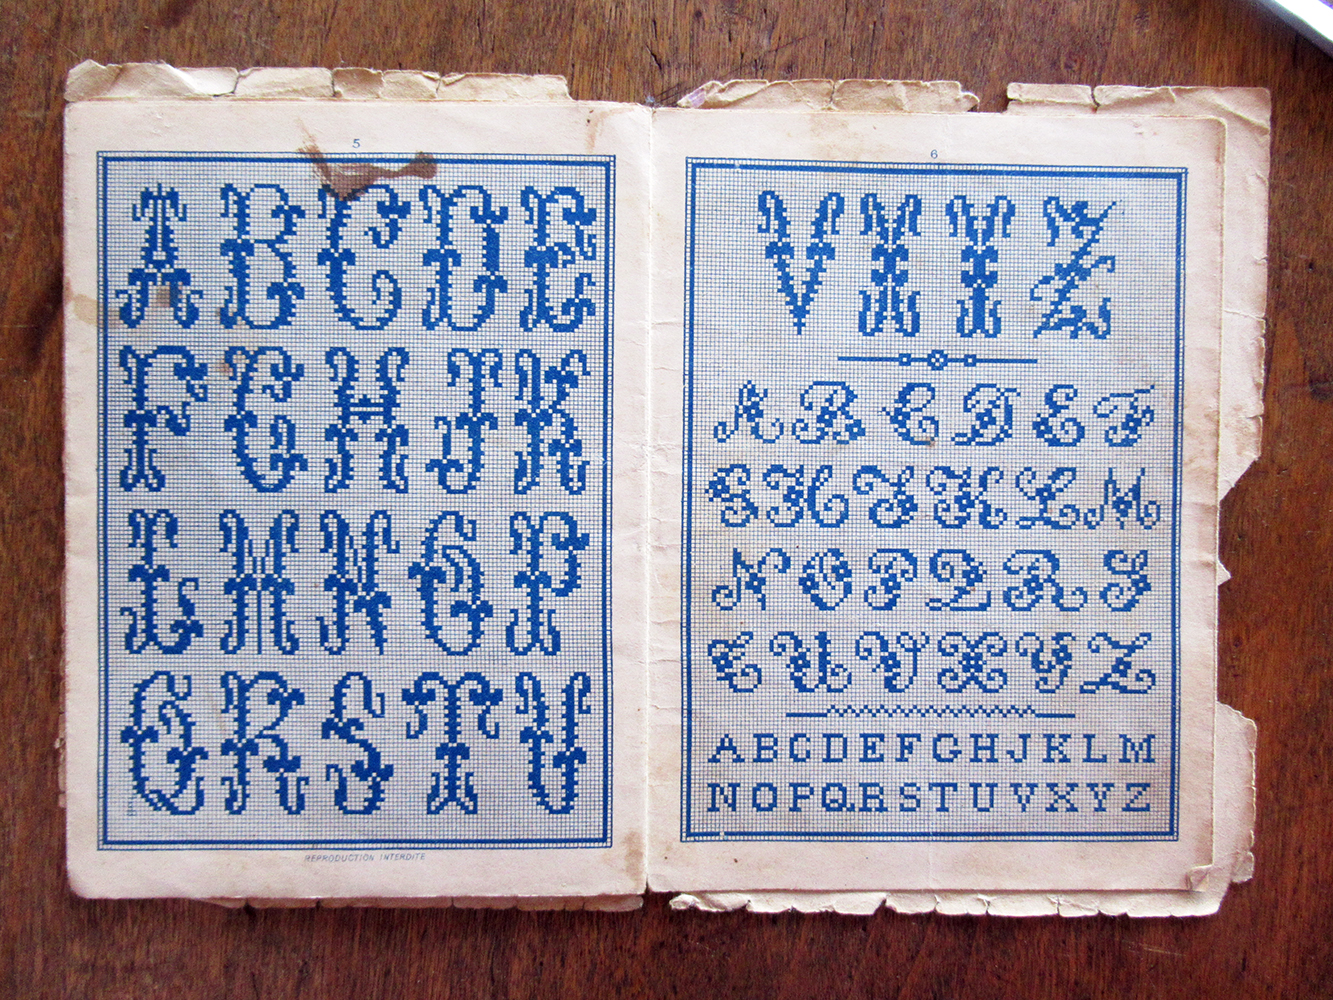 5
A B C D E
F G H J K
L M N O P
Q R S T U
REPRODUCTION INTERDITE
6
V X Y Z
A B C D E F
G H J K L M
N O P Q R S
T U V X Y Z
A B C D E F G H J K L M
N O P Q R S T U V X Y Z